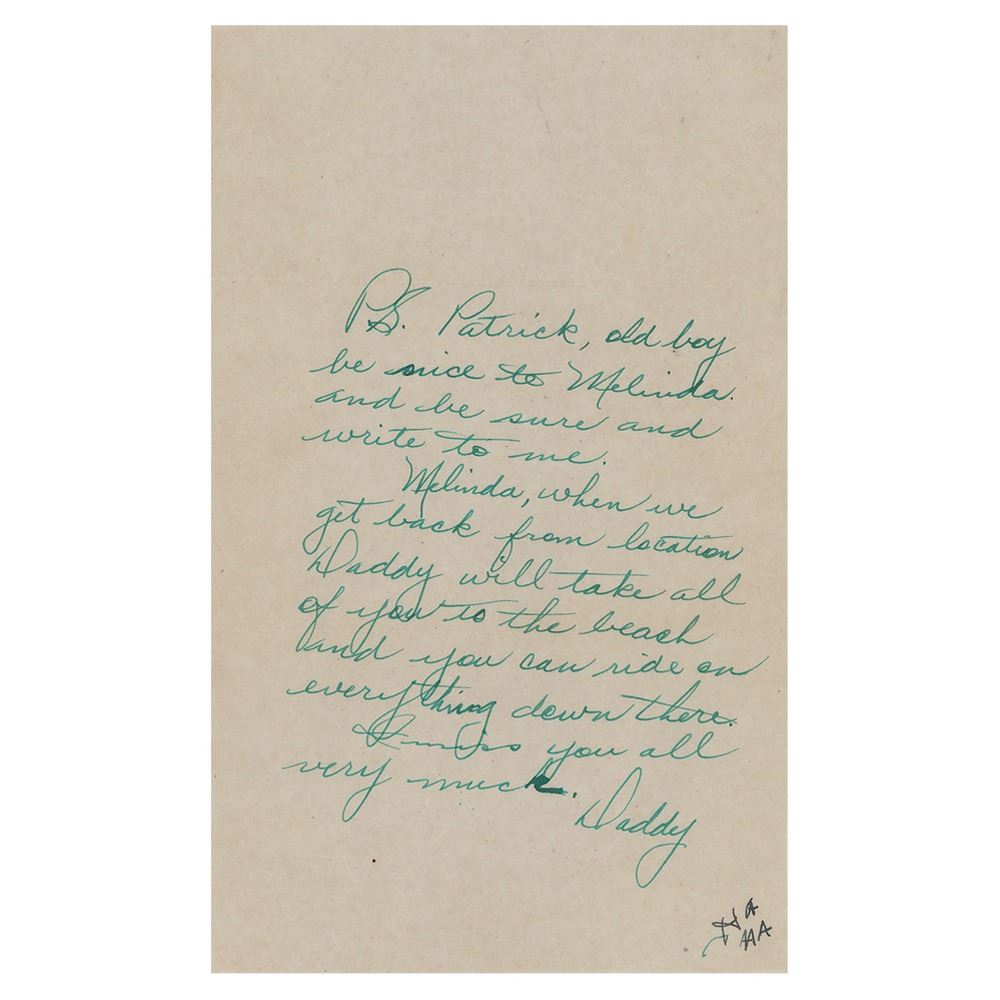 P.S. Patrick, old boy
be nice to Melinda.
and be sure and
write to me.
Melinda, when we
get back from location
Daddy will take all
of you to the beach
and you can ride on
everything down there.
I miss you all
very much.
Daddy